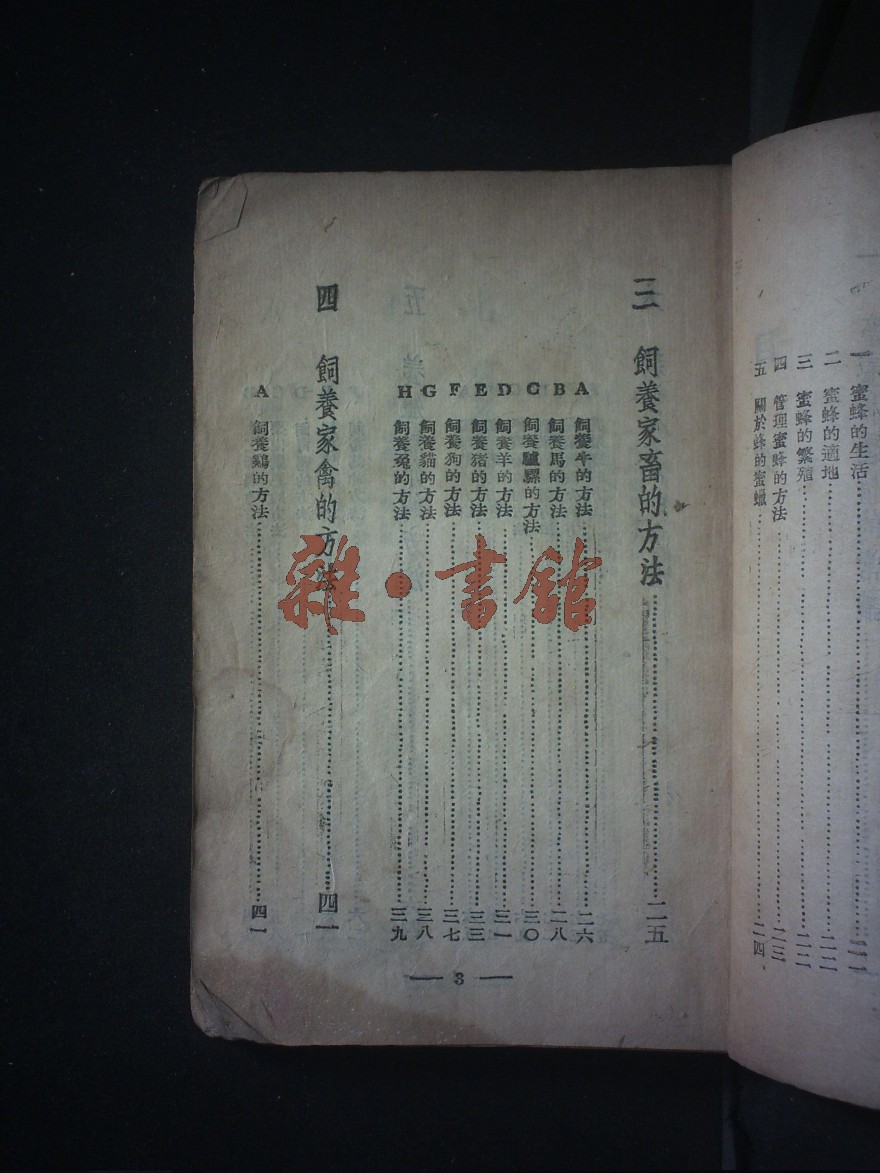 一 蜜蜂的生活
二 蜜蜂的適地……二二
三 蜜蜂的繁殖……二二
四 管理蜜蜂的方法……二三
五 關於蜂的蜜蠟……二四
三 飼養家畜的方法……二五
A 飼養牛的方法……二六
B 飼養馬的方法……二八
C 飼養驢騾的方法……三〇
D 飼養羊的方法……三一
E 飼養猪的方法……三三
F 飼養狗的方法……三七
G 飼養貓的方法……三八
H 飼養兔的方法……三九
四 飼養家禽的方法……四一
A 飼養鷄的方法……四一
— 3 —
雜·書館